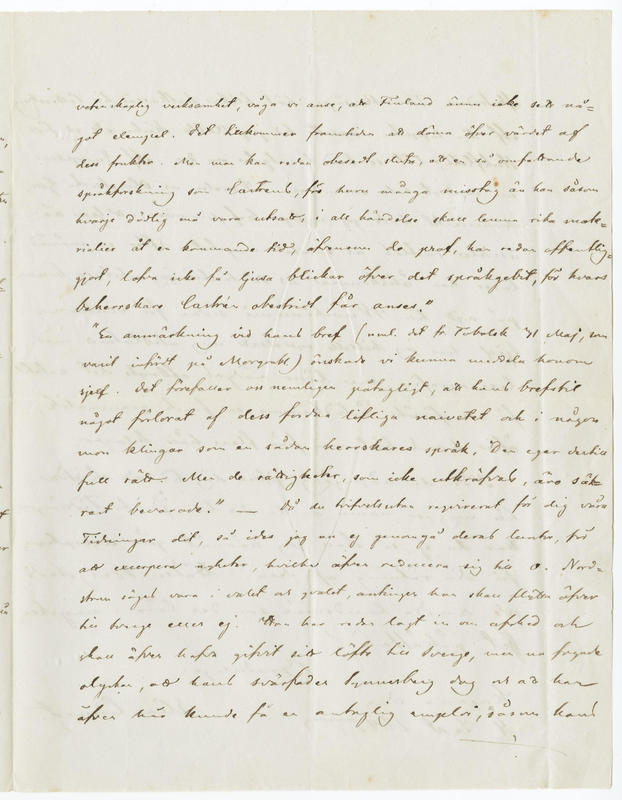 vetenskaplig verksamhet, våga vi anse, att Finland ännu icke sett nå-
got exempel. Det tillkommer framtiden att döma öfver värdet af
dess frukter. Men man kan redan obesedt sluta, att en så omfattande
språkforskning som Castréns, för huru många misstag än han såsom
hvarje dödlig må vara utsatt, i all händelse skall lemna rika mate-
rialier åt en kommande tid, äfvensom de prof, han redan offentlig-
gjort, låta icke få ljusa blickar öfver det språkgebit, för hvars
beherrskare Castrén obestridt får anses."
"En anmärkning vid hans bref (neml. det fr. Tobolsk 31 Maj, som
varit infördt på Morgonbl) önskade vi kunna meddela honom
sjelf. Det förefaller oss nemligen påtagligt, att hans brefstil
något förlorat af dess fordna lifliga naivetet och i någon
mon klingar som en sådan herrskares språk. Den eger dertill
full rätt. Men de rättigheter, som icke utkräfvas, äro säk-
rast bevarade." — Då du tvifvelsutan reqvirerat för dig våra
Tidningar dit, så ides jag nu ej genomgå deras luntor, för
att excerpera nyheter, hvilka äfven reducera sig till 0. Nord-
ström säges vara i valet och qvalet, antingen han skall flytta öfver
till Sverge eller ej. Han har redan tagit in om afsked och
skall äfven hafva gifvit sitt löfte till Sverge, men nu fogade
olyckan, att hans svärfader dog och att han
äfven här kunde få en antaglig emploi, såsom hans